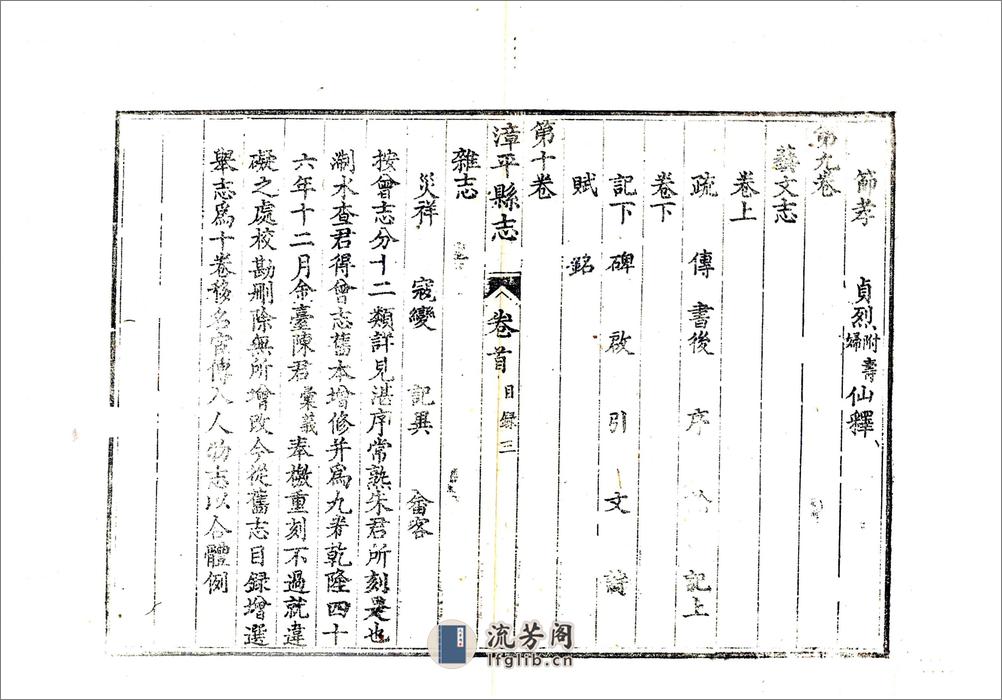 節孝 貞烈附壽婦 仙釋
第九卷
藝文志
卷上
疏 傳 書後 序 記上
卷下
記下 碑 啟 引 文 詩
賦 銘
第十卷
漳平縣志 卷首 目録 三
雜志
災祥 寇變 記異 畬客
按曾志分十二類詳見湛序常熟朱君所刻是也
淛水查君得曾志舊本增修并為九卷乾隆四十
六年十二月金臺陳君彙義奉檄重刻不過就違
礙之處校勘刪除無所增改今從舊志目録增選
舉志為十卷移名宦傳入人物志以合體例
流芳阁
lfglib.cn